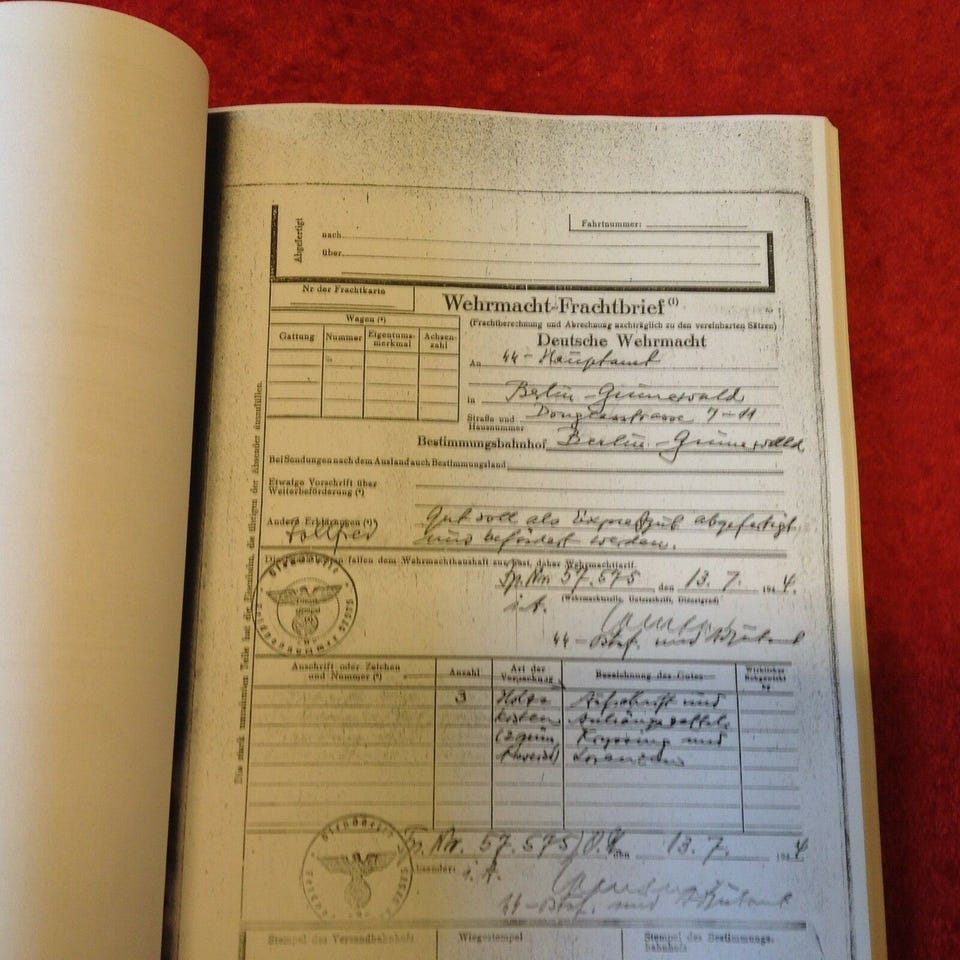 Fahrtnummer:
Abgefertigt
nach
über
Nr der Frachtkarte
Wehrmacht-Frachtbrief (¹)
(Frachtberechnung und Abrechnung nachträglich zu den vereinbarten Sätzen)
Wagen (²)
Gattung Nummer Eigentums-merkmal Achsen-zahl
Deutsche Wehrmacht
An ᛋᛋ-Hauptamt
in Berlin-Grunewald
Straße und Hausnummer Douglasstrasse 7-11
Bestimmungsbahnhof Berlin-Grunewald
Bei Sendungen nach dem Ausland auch Bestimmungsland
Etwaige Vorschrift über
Weiterbeförderung (³)
Andere Erklärungen (⁴) Gut soll als Expreßgut abgefertigt
und befördert werden.
fallen dem Wehrmachthaushalt zur Last, daher Wehrmachttarif.
Fp. Nr. 57.575 den 13. 7. 1944.
i.A. (Wehrmachtstelle, Unterschrift, Dienstgrad)
ᛋᛋ-Ostuf. und Adjutant
Die stark umrahmten Teile hat die Eisenbahn, die übrigen der Absender auszufüllen.
Anschrift oder Zeichen
und Nummer (⁵)
Anzahl
Art der
Verpackung
Bezeichnung des Gutes
Wirkliches
Rohgewicht
kg
3 Holz- Aufschrift und
kisten Anhängezettel:
und
Fp. Nr. 57.575 den 13. 7. 1944
Absender: i.A.
ᛋᛋ-Ostuf. und Adjutant
Stempel des Versandbahnhofs
Wiegestempel
Stempel des Bestimmungs-
bahnhofs